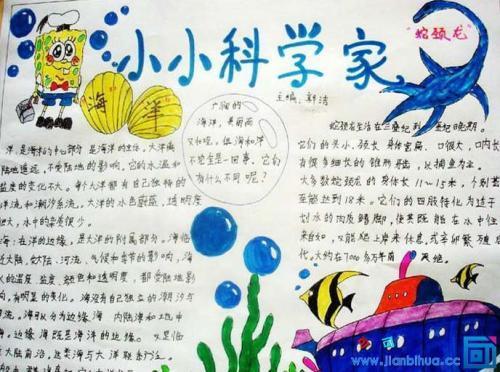 小小科学家
"蛇颈龙"
海 洋
主编:郭洁
广阔的
海洋,美丽而
又和谐。但海和洋
不完全是一回事。它们
有什么不同呢?
洋,是海洋的中心部分,是海洋的主体。大洋离
陆地遥远,不受陆地的影响。它的水温和
盐度的变化不大。每个大洋都有自己独特的
洋流和潮汐系统。大洋的水色蔚蓝,透明度
很大,水中的杂质很少。
海:在洋的边缘,是大洋的附属部分。海临
近大陆,
河流、气候和季节的影响,海
的温度、盐度、颜色和透明度,都受陆地影
响,有明显的变化。海没有自己独立的潮汐与
海流。海可以分为边缘海、内陆海和地中
海。边缘海既是海洋的边缘,又是临
近大陆前沿,这类海与大洋联系
蛇颈龙生活在三叠纪到
纪晚期。
它们的头小,颈长,身体宽扁,口很大,口内长
有很多细长的锥形牙齿,以捕鱼为生。
大多数蛇颈龙的身体长11~15米,个别甚
至能达到18米。它们的四肢特化为适于
划水的肉质鳍脚,使其既能在水中往
来自如,又能爬上岸来休息,或产卵繁殖后
代。大约在7000多万年前灭绝。
www.jianbihua.cc